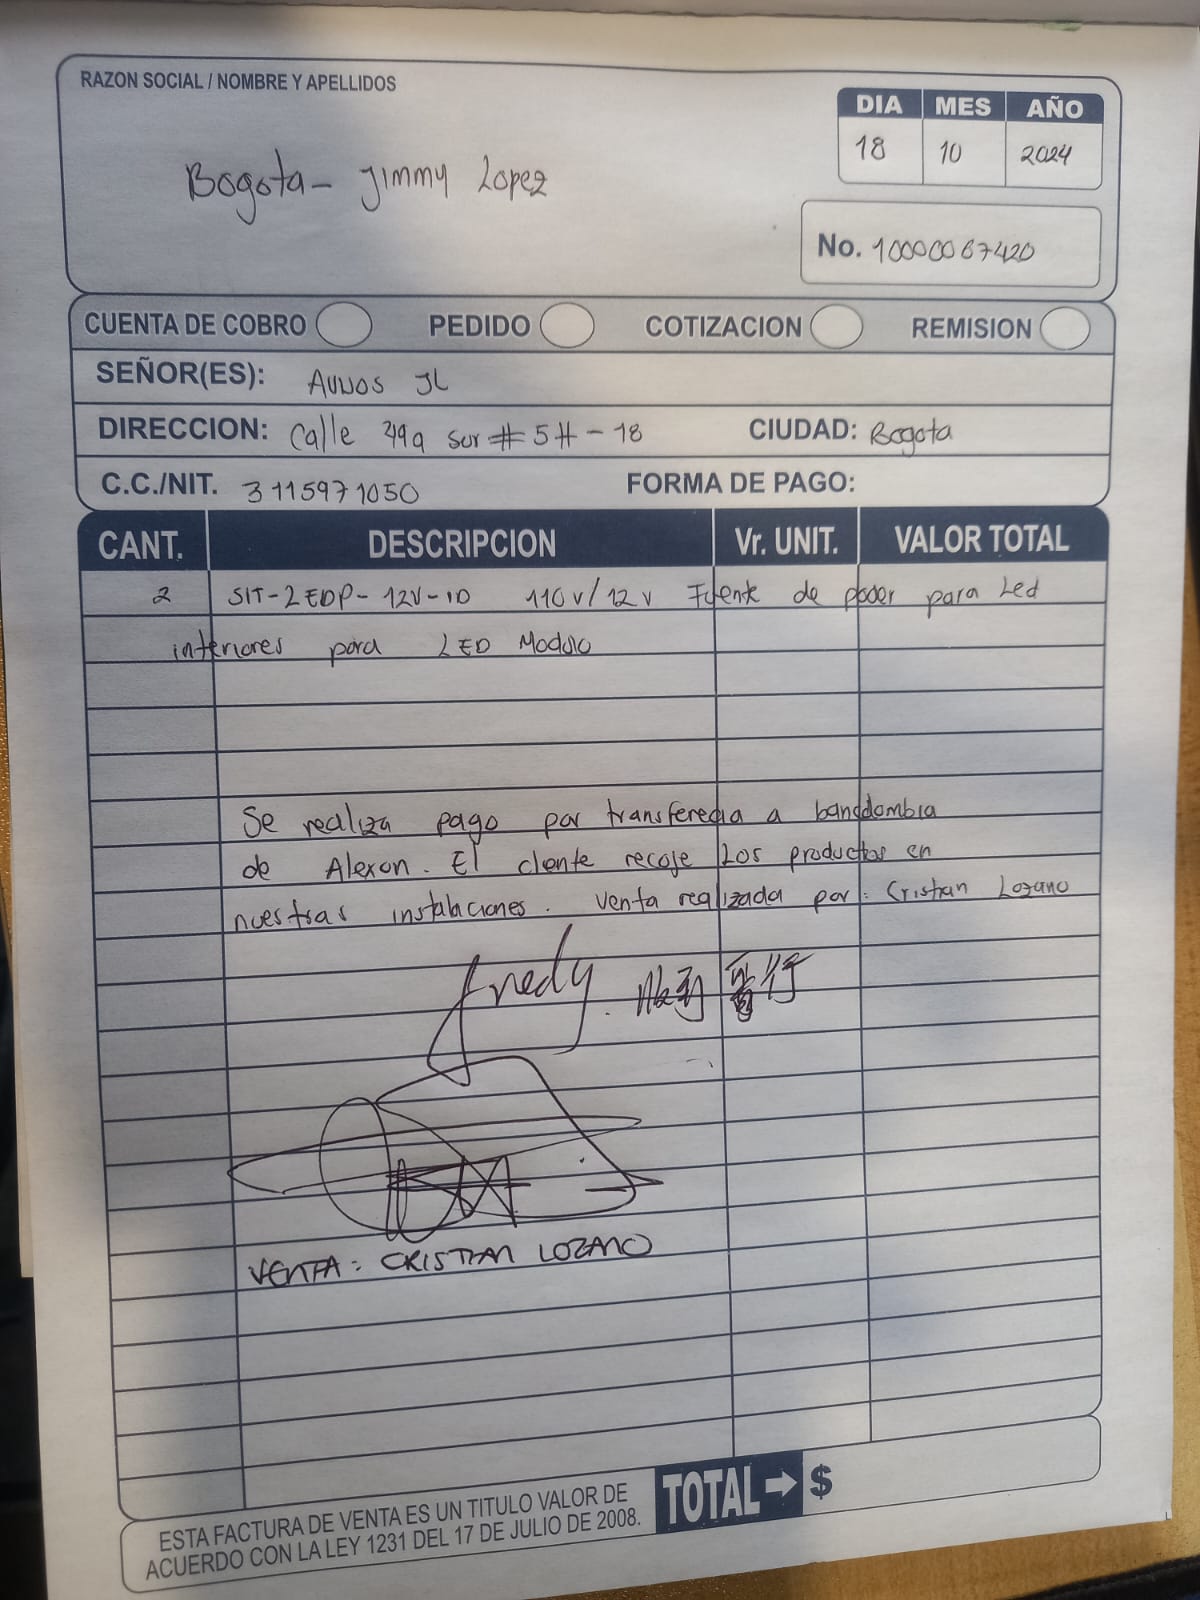 RAZON SOCIAL / NOMBRE Y APELLIDOS
Bogota - Jimmy Lopez
DIA MES AÑO
18 10 2024
No. 10000067420
CUENTA DE COBRO PEDIDO COTIZACION REMISION
SEÑOR(ES): Avisos JL
DIRECCION: Calle 49a sur # 5H - 18 CIUDAD: Bogota
C.C./NIT. 3115971050 FORMA DE PAGO:
CANT. DESCRIPCION Vr. UNIT. VALOR TOTAL
2 SIT-LEDP-12V-10 110v/12v Fuente de poder para Led
interiores para LED Modulo
Se realiza pago por transferecia a bancolombia
de Alexon. El cliente recoje Los productos en
nuestras instalaciones. Venta realizada por: Cristian Lozano
fredy.
VENTA: CRISTIAN LOZANO
TOTAL → $
ESTA FACTURA DE VENTA ES UN TITULO VALOR DE
ACUERDO CON LA LEY 1231 DEL 17 DE JULIO DE 2008.